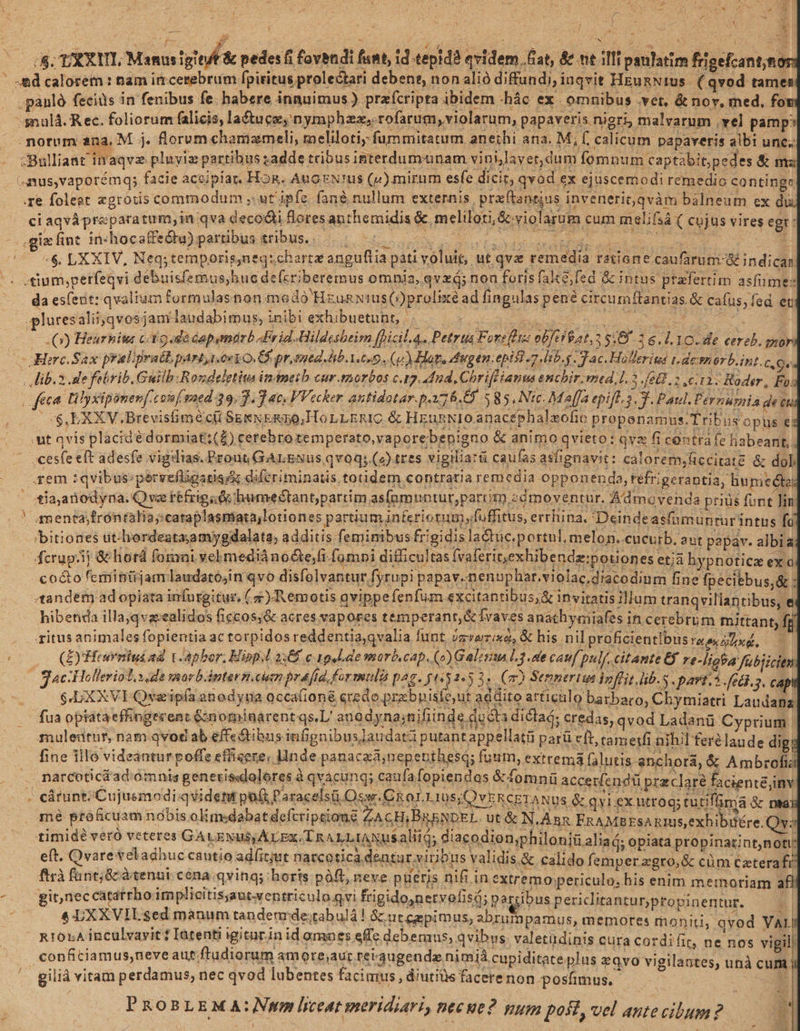 §. LXXIII. Manus igitur & pedes si fovendi sunt, id tepidè qvidem fiat, & ut illi paulatim frigescant, non
ad calorem: nam in cerebrum spiritus prolectari debent, non aliò diffundi, inqvit HEURNIUS (qvod tamen
paulò feciùs in senibus se habere innuimus) præscripta ibidem hâc ex omnibus vet. & nov. med. for
mulâ. Rec. foliorum salicis, lactucæ, nymphææ, rosarum, violarum, papaveris nigri, malvarum vel pamp
norum ana. M j. florum chamæmeli, meliloti, summitatum anethi ana. M, ſ calicum papaveris albi unc.
Bulliant in aqvæ pluviæ partibus adde tribus interdum unam vini, lavet, dum somnum captabit, pedes & ma
nus, vaporémq; facie accipiat. HOR. AUGENIUS (u) mirum esse dicit, qvod ex ejuscemodi remedio conting
re solear ægrotis commodum, ut ipse sanè nullum externis præstantius invenerit, qvàm balneum ex du
ci aqvâ præparatum, in qva decocti flores anthemidis & meliloti, & violarum cum melissâ (cujus vires egr
giæ sint in hoc affectu) partibus tribus.
§. LXXIV. Neq; temporis, neq; chartæ angustia pati voluit, ut qvæ remedia ratione causarum & indican
tium, perseqvi debuissemus, huc describeremus omnia, qvæq; non foris saltè, sed & intus præsertim assume
da essent: qvalium formulas non modò HEURNIUS (ι) prolixè ad singulas penè circumstantias & casus, sed eti
plures alii, qvos jam laudabimus, inibi exhibuerunt,
lib. 2. de febrib. Guilh. Rondeletius in meth cur. morbos c. 17. And. Christianus enchir. med. l. 3. sect. 2. c. 12. Roder. Fo
§. LXXV. Brevissimè cū SENNERTO, HOLLERIO & HEURNIO anacephalæosic proponamus. Tribus opus e
ut qvis placidè dormiat: (ξ) cerebro temperato, vapore benigno & animo qvieto: qvæ si contrà se habeant,
cesse est adesse vigilias. Prout GALENUS qvoq; (ο) tres vigiliarū causas assignavit: calorem, siccitatē & dol
rem: qvibus pervestigatis & discriminatis totidem contraria remedia opponenda, refrigerantia, humecta
tia, anodyna. Qvæ refrig. & humectant, partim assumuntur, partim admoventur. Admovenda priùs sunt lin
menta, frontalia, cataplasmata, lotiones partium inferiorum, suffitus, errhina. Deinde assumuntur intus so
bitiones ut hordeata, amygdalata, additis seminibus frigidis lactuc. portul. melon. cucurb. aut papav. albi a
scrup. ij & horâ somni vel mediâ nocte, si somni difficultas svaserit, exhibendæ: potiones etjā hypnoticæ ex a
cocto seminū jam laudato, in qvo dissolvantur syrupi papav. nenuphar. violac. diacodium sine speciebus, &
tandem ad opiata insurgitur. (π) Remotis qvippe sensum excitantibus, & invitatis illum tranqvillantibus, e
hibenda illa, qvæ calidos siccos, & acres vapores temperant, & svaves anathymiases in cerebrum mittant, sp
ritus animales sopientia ac torpidos reddentia, qvalia sunt & his nil proficientibus
§. LXXVI Qvæ ipsa anodyna occasionē credo præbuisse, ut addito articulo barbaro, Chymiatri Laudana
sua opiata effingerent & nominarent qs. L' anodyna; nisi inde ducta dictaq; credas, qvod Ladanū Cyprium
mulentur, nam qvod ab effectibus insignibus laudatū putant appellatū parū est, tametsi nihil ferè laude dig
sine illo videantur posse efficere. Unde panaceā, nepenthesq; suum, extremā salutis anchorā, & Ambrosia
narcotica ad omnis generis dolores à qvacunq; causa sopiendos & somnū accersendū præclarè facientē, inv
cârunt. Cujusmodi qvidem post Paracelsū Osw. CROLLIUS, QVERCETANUS & qvi ex utroq; tutissimā & ma
mè proficuam nobis olim dabat descriptionē ZACH. BRENDEL. ut & N. ABR FRAMBESARIUS, exhibuere. Qv
timidè verò veteres GALENUS, ALEX. TRALLIANUS aliiq; diacodion, philoniū aliaq; opiata propinarint, notu
est. Qvare vel adhuc cautio adsit, ut narcotica dentur viribus validis & calido semper ægro, & cùm cætera fr
strà sunt, & à tenui cœna qvinq; horis pòst, neve pueris nisi in extremo periculo, his enim memoriam afl
git, nec catarrho implicitis, aut ventriculo qvi frigido, nervosisq; partibus periclitantur, propinentur.
§ LXXVII. sed manum tandem de tabulâ! & ut cœpimus, abrumpamus, memores moniti, qvod VAL
RIOLA inculvavit: Intenti igitur in id omnes esse debemus, qvibus valetudinis cura cordi sit, ne nos vigil
conficiamus, neve aut studiorum amore, aut rei augendæ nimiâ cupiditate plus æqvo vigilantes, unà cum
giliâ vitam perdamus, nec qvod lubentes facimus, diutiùs facere non possimus.
PROBLEMA: Num liceat meridiari, nec ne? num post, vel ante cibum?